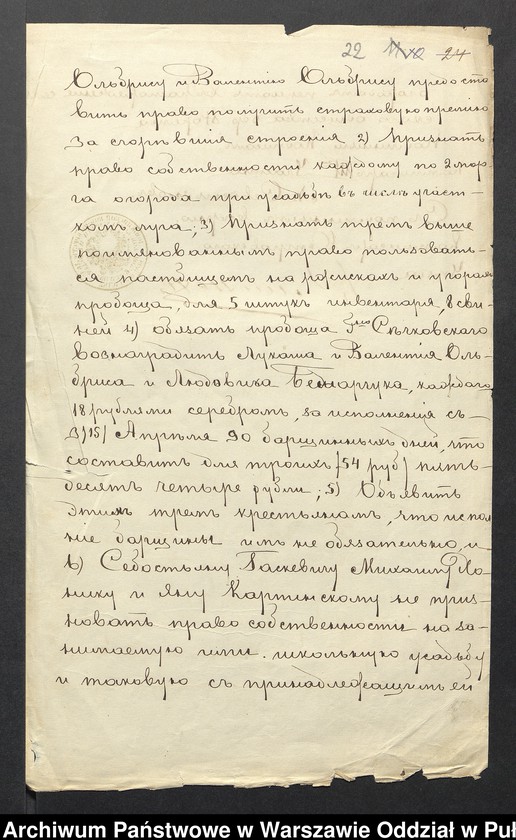 22 24
Ольбрису и Валентію Ольбрису предоста
вить право получить страховую премію
за сгорѣвшія строенія 2) Признать
право собственности каждому по 2 мор-
га огорода при усадьбѣ въ числѣ участ-
комъ луга; 3) Признать тремъ выше
поимянованнымъ право пользовать-
ся пастбищемъ на рожискахъ и угорахъ
пробоща, для 5 штукъ инвентаря, 8 сви-
ней 4) обязать пробоща Сѣчковскаго
вознаградить Лукаша и Валентія Оль-
бриса и Людовика Беднарчука, каждаго
18 рублями серебромъ, за исполненія съ
3/15/ Апрѣля 90 барщинныхъ дней, что
составитъ для троихъ /54 руб/ пять-
десятъ четыре рубли; 5) Объявить
этимъ тремъ крестьянамъ, что испол
ніе барщины имъ не обязательно, и
6) Севостьяну Гаскевичу Михаилу Ло-
нику и Яну Картинскому не приз-
новать право собственности на за-
нимаемую ими школьную усадьбу
и таковую съ принадлежащимъ ей
Archiwum Państwowe w Warszawie Oddział w Puł